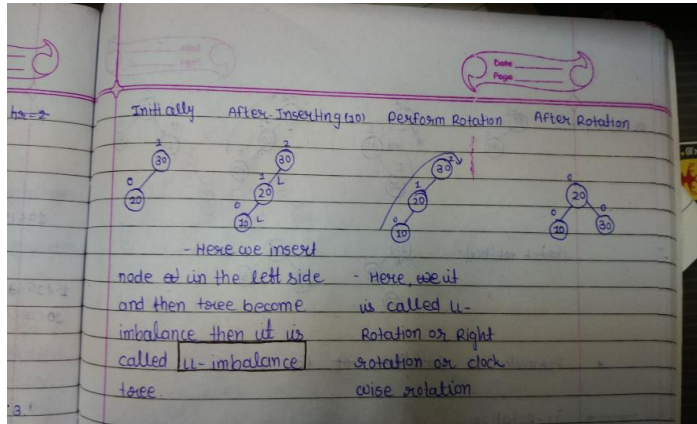 Date
Page
hr=2
Initially After Inserting(10) Perform Rotation After Rotation
1 2 2
30 30 30
0 1 L 1 0
20 20 20 20
0 L 0 0 0
10 10 10 30
- Here we insert
node in the left side
and then tree become
imbalance then it is
called LL- imbalance
tree
- Here, it
is called LL-
Rotation or Right
rotation or clock
wise rotation
3